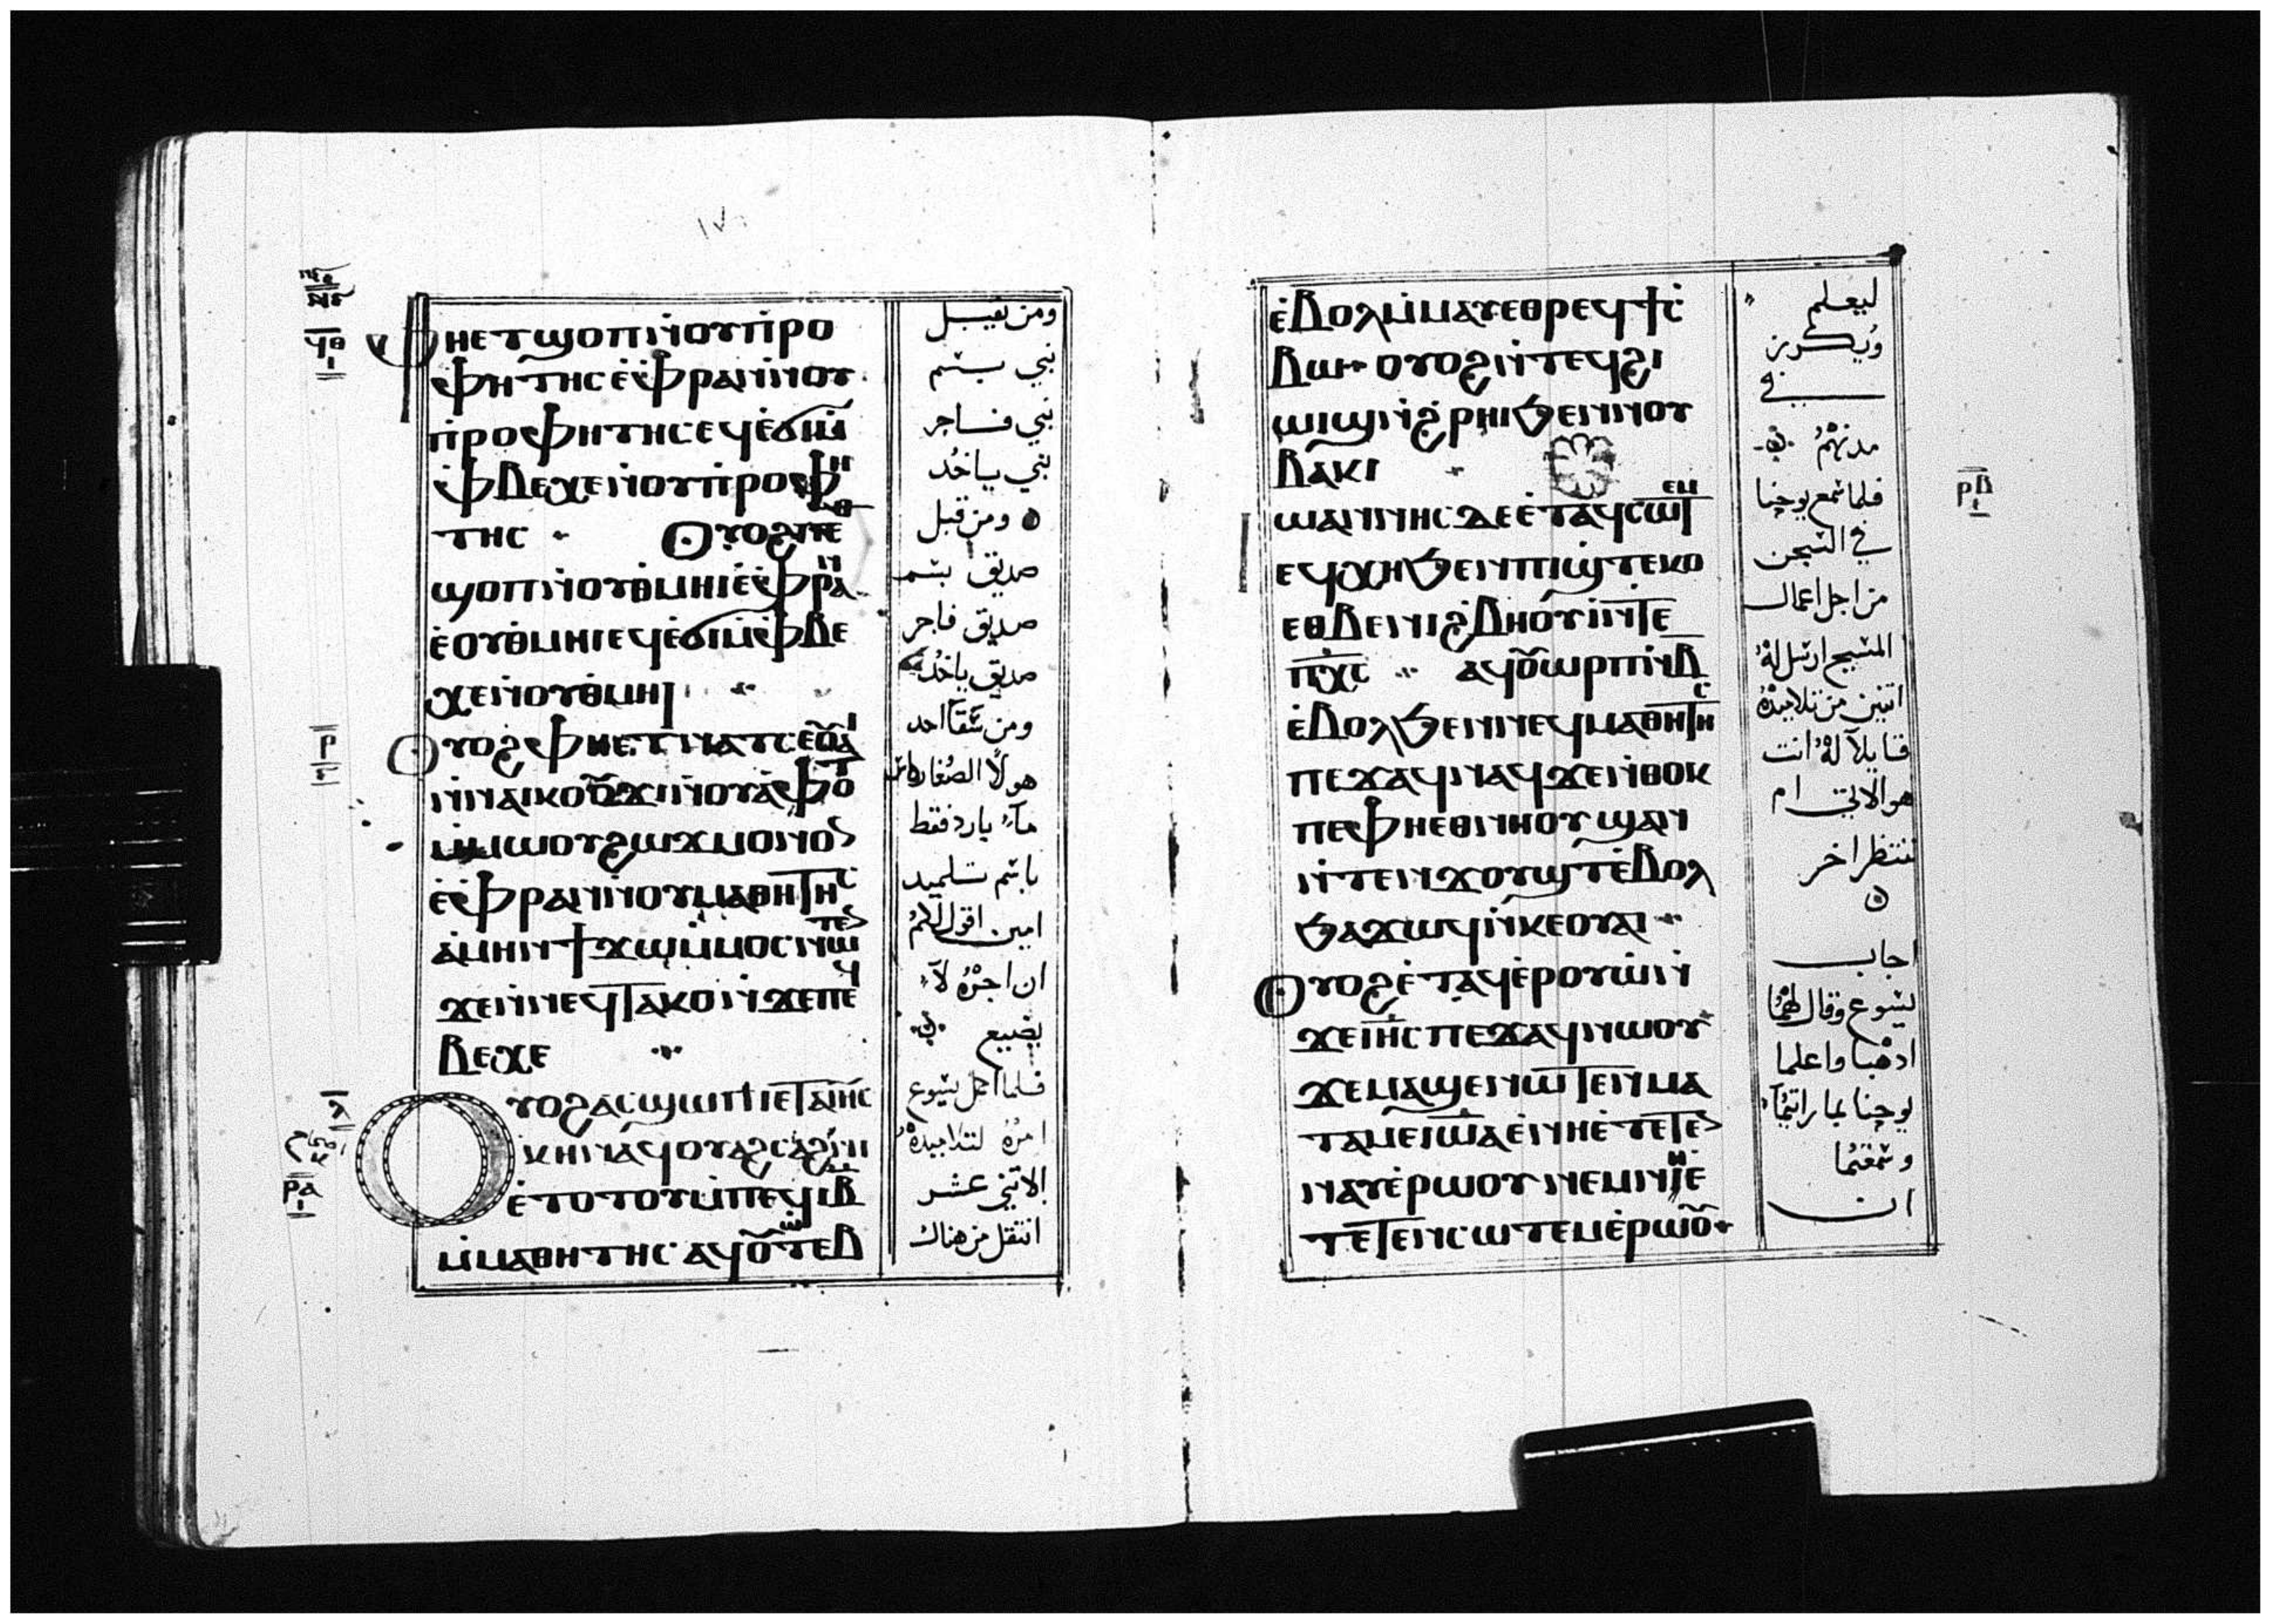 ⲫⲏⲉⲧϣⲟⲡ ⲛ̀ⲟⲩⲡ̀ⲣⲟ
ⲫⲏⲧⲏⲥ ⲉ̀ⲫ̀ⲣⲁⲛ ⲛ̀ⲟⲩ
ⲡ̀ⲣⲟⲫⲏⲧⲏⲥ ⲉϥⲉ̀ϭⲓ ⲙ̀
ⲫ̀ⲃⲉⲭⲉ ⲛ̀ⲟⲩⲡ̀ⲣⲟⲫⲏ
ⲧⲏⲥ ⲟⲩⲟϩ ⲫⲏⲉⲑ
ϣⲟⲡ ⲛ̀ⲟⲩⲑ̀ⲙⲏⲓ ⲉ̀ⲫ̀ⲣⲁⲛ
ⲉ̀ⲟⲩⲑ̀ⲙⲏⲓ ⲉϥⲉ̀ϭⲓ ⲙ̀ⲫ̀ⲃⲉ
ⲭⲉ ⲛ̀ⲟⲩⲑ̀ⲙⲏⲓ
ⲟⲩⲟϩ ⲫⲏⲉⲧⲛⲁⲧⲥⲉ ⲟⲩⲁⲓ
ⲛ̀ⲛⲁⲓⲕⲟⲩϫⲓ ⲛ̀ⲟⲩⲁ̀ⲫⲟⲧ
ⲙ̀ⲙⲱⲟⲩ ϩⲱϫ ⲙⲟⲛⲟⲛ
ⲉ̀ⲫ̀ⲣⲁⲛ ⲛ̀ⲟⲩⲙⲁⲑⲏⲧⲏⲥ
ⲁ̀ⲙⲏⲛ ϯϫⲱ ⲙ̀ⲙⲟⲥ ⲛⲱⲧⲉⲛ
ϫⲉ ⲛ̀ⲛⲉϥⲧⲁⲕⲟ ⲛ̀ϫⲉ ⲡⲉϥ
ⲃⲉⲭⲉ
ⲟⲩⲟϩ ⲁⲥϣⲱⲡⲓ ⲉⲧⲁ ⲓⲏⲥ
ⲕⲏⲛ ⲁϥⲟⲩⲁϩⲥⲁϩⲛⲓ
ⲉ̀ⲧⲟⲧⲟⲩ ⲙ̀ⲡⲉϥⲓⲃ
ⲙ̀ⲙⲁⲑⲏⲧⲏⲥ ⲁϥⲟⲩⲱⲧⲉⲃ
ومن يقبل
نبي بسم
نبي فاجر
نبي ياخد
ومن قبل
صديق بسم
صديق فاجر
صديق ياخد
ومن سقا احد
هولا الصغار كاس
ما بارد فقط
باسم تلميد
امين اقول لكم
ان اجره لا
يضيع
فلما اكمل يسوع
امره لتلاميذه
الاثني عشر
انتقل من هناك
ϥⲑ
ⲣ
ⲣⲁ
ⲉ̀ⲃⲟⲗ ⲙ̀ⲙⲁⲩ ⲉⲑⲣⲉϥϯⲥ̀
ⲃⲱ ⲟⲩⲟϩ ⲛ̀ⲧⲉϥϩⲓ
ⲱⲓϣ ⲛ̀ϩ̀ⲣⲏⲓ ϧⲉⲛ ⲛⲟⲩ
ⲃⲁⲕⲓ
ⲓⲱⲁⲛⲛⲏⲥ ⲇⲉ ⲉ̀ⲧⲁϥⲥⲱⲧⲉⲙ
ⲉϥⲭⲏ ϧⲉⲛ ⲡⲓϣ̀ⲧⲉⲕⲟ
ⲉⲑⲃⲉ ⲛⲓϩ̀ⲃⲏⲟⲩⲓ̀ ⲛ̀ⲧⲉ
ⲡⲭⲥ ⲁϥⲟⲩⲱⲣⲡ ⲛ̀ⲃ
ⲉ̀ⲃⲟⲗ ϧⲉⲛ ⲛⲉϥⲙⲁⲑⲏⲧⲏⲥ
ⲡⲉϫⲁϥ ⲛⲁϥ ϫⲉ ⲛ̀ⲑⲟⲕ
ⲡⲉ ⲫⲏⲉⲑⲛⲏⲟⲩ ϣⲁⲛ
ⲛ̀ⲧⲉⲛϫⲟⲩϣⲧ ⲉ̀ⲃⲟⲗ
ϧⲁϫⲱϥ ⲛ̀ⲕⲉⲟⲩⲁⲓ
ⲟⲩⲟϩ ⲉ̀ⲧⲁϥⲉ̀ⲣⲟⲩⲱ̀ ⲛ̀
ϫⲉ ⲓⲏⲥ ⲡⲉϫⲁϥ ⲛⲱⲟⲩ
ϫⲉ ⲙⲁϣⲉⲛⲱⲧⲉⲛ ⲙⲁ
ⲧⲁⲙⲉ ⲓⲱⲁ ⲉ̀ⲛⲏⲉ̀ⲧⲉⲧⲉⲛ
ⲛⲁⲩ ⲉ̀ⲣⲱⲟⲩ ⲛⲉⲙ ⲛⲏⲉ̀
ⲧⲉⲧⲉⲛⲥⲱⲧⲉⲙ ⲉ̀ⲣⲱⲟⲩ
ليعلم
ويكرز
في
مدنهم
فلما سمع يوحنا
في السجن
من اجل اعمال
المسيح ارسل له
اتنين من تلاميذه
قايلا له انت
هو الاتي ام
ننتظر اخر
اجاب
يسوع وقال لهما
ادهبا واعلما
يوحنا بما رايتما
وسمعتما
ان
ⲣⲃ